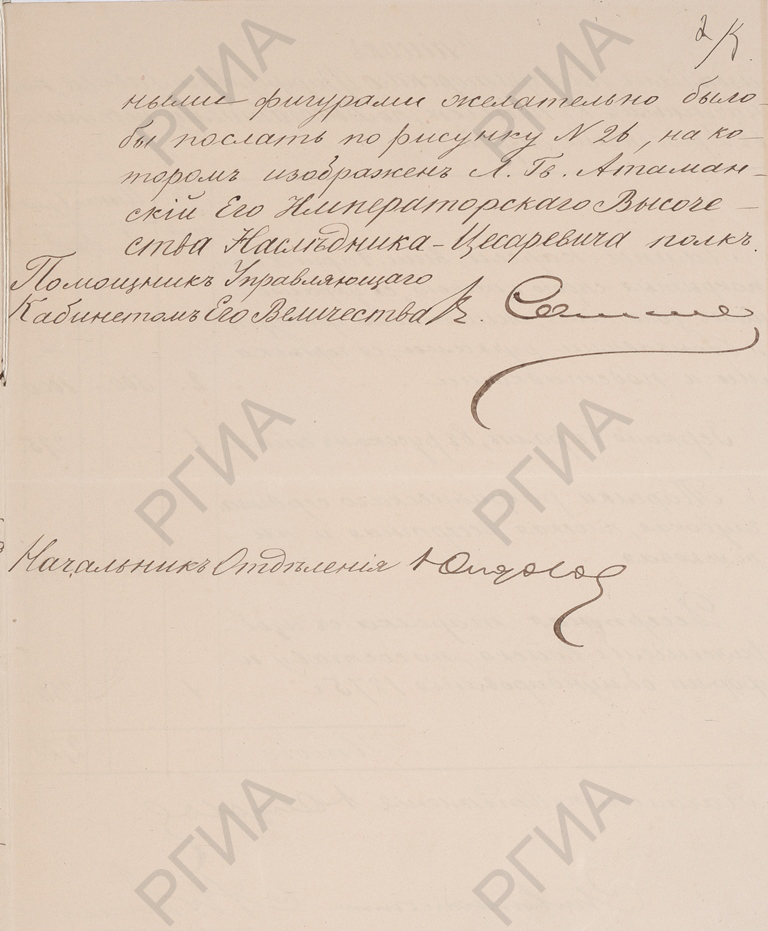 2/К.
ными фигурами желательно было-
бы послать по рисунку N 26, на ко-
торомъ изображенъ Л. Гв. Атаман-
скій Его Императорскаго Высоче-
ства Наслѣдника-Цесаревича полкъ.
Помощникъ Управляющаго
Кабинетомъ Его Величества
Начальникъ Отдѣленія
РГИА РГИА
РГИА РГИА
РГИА РГИА